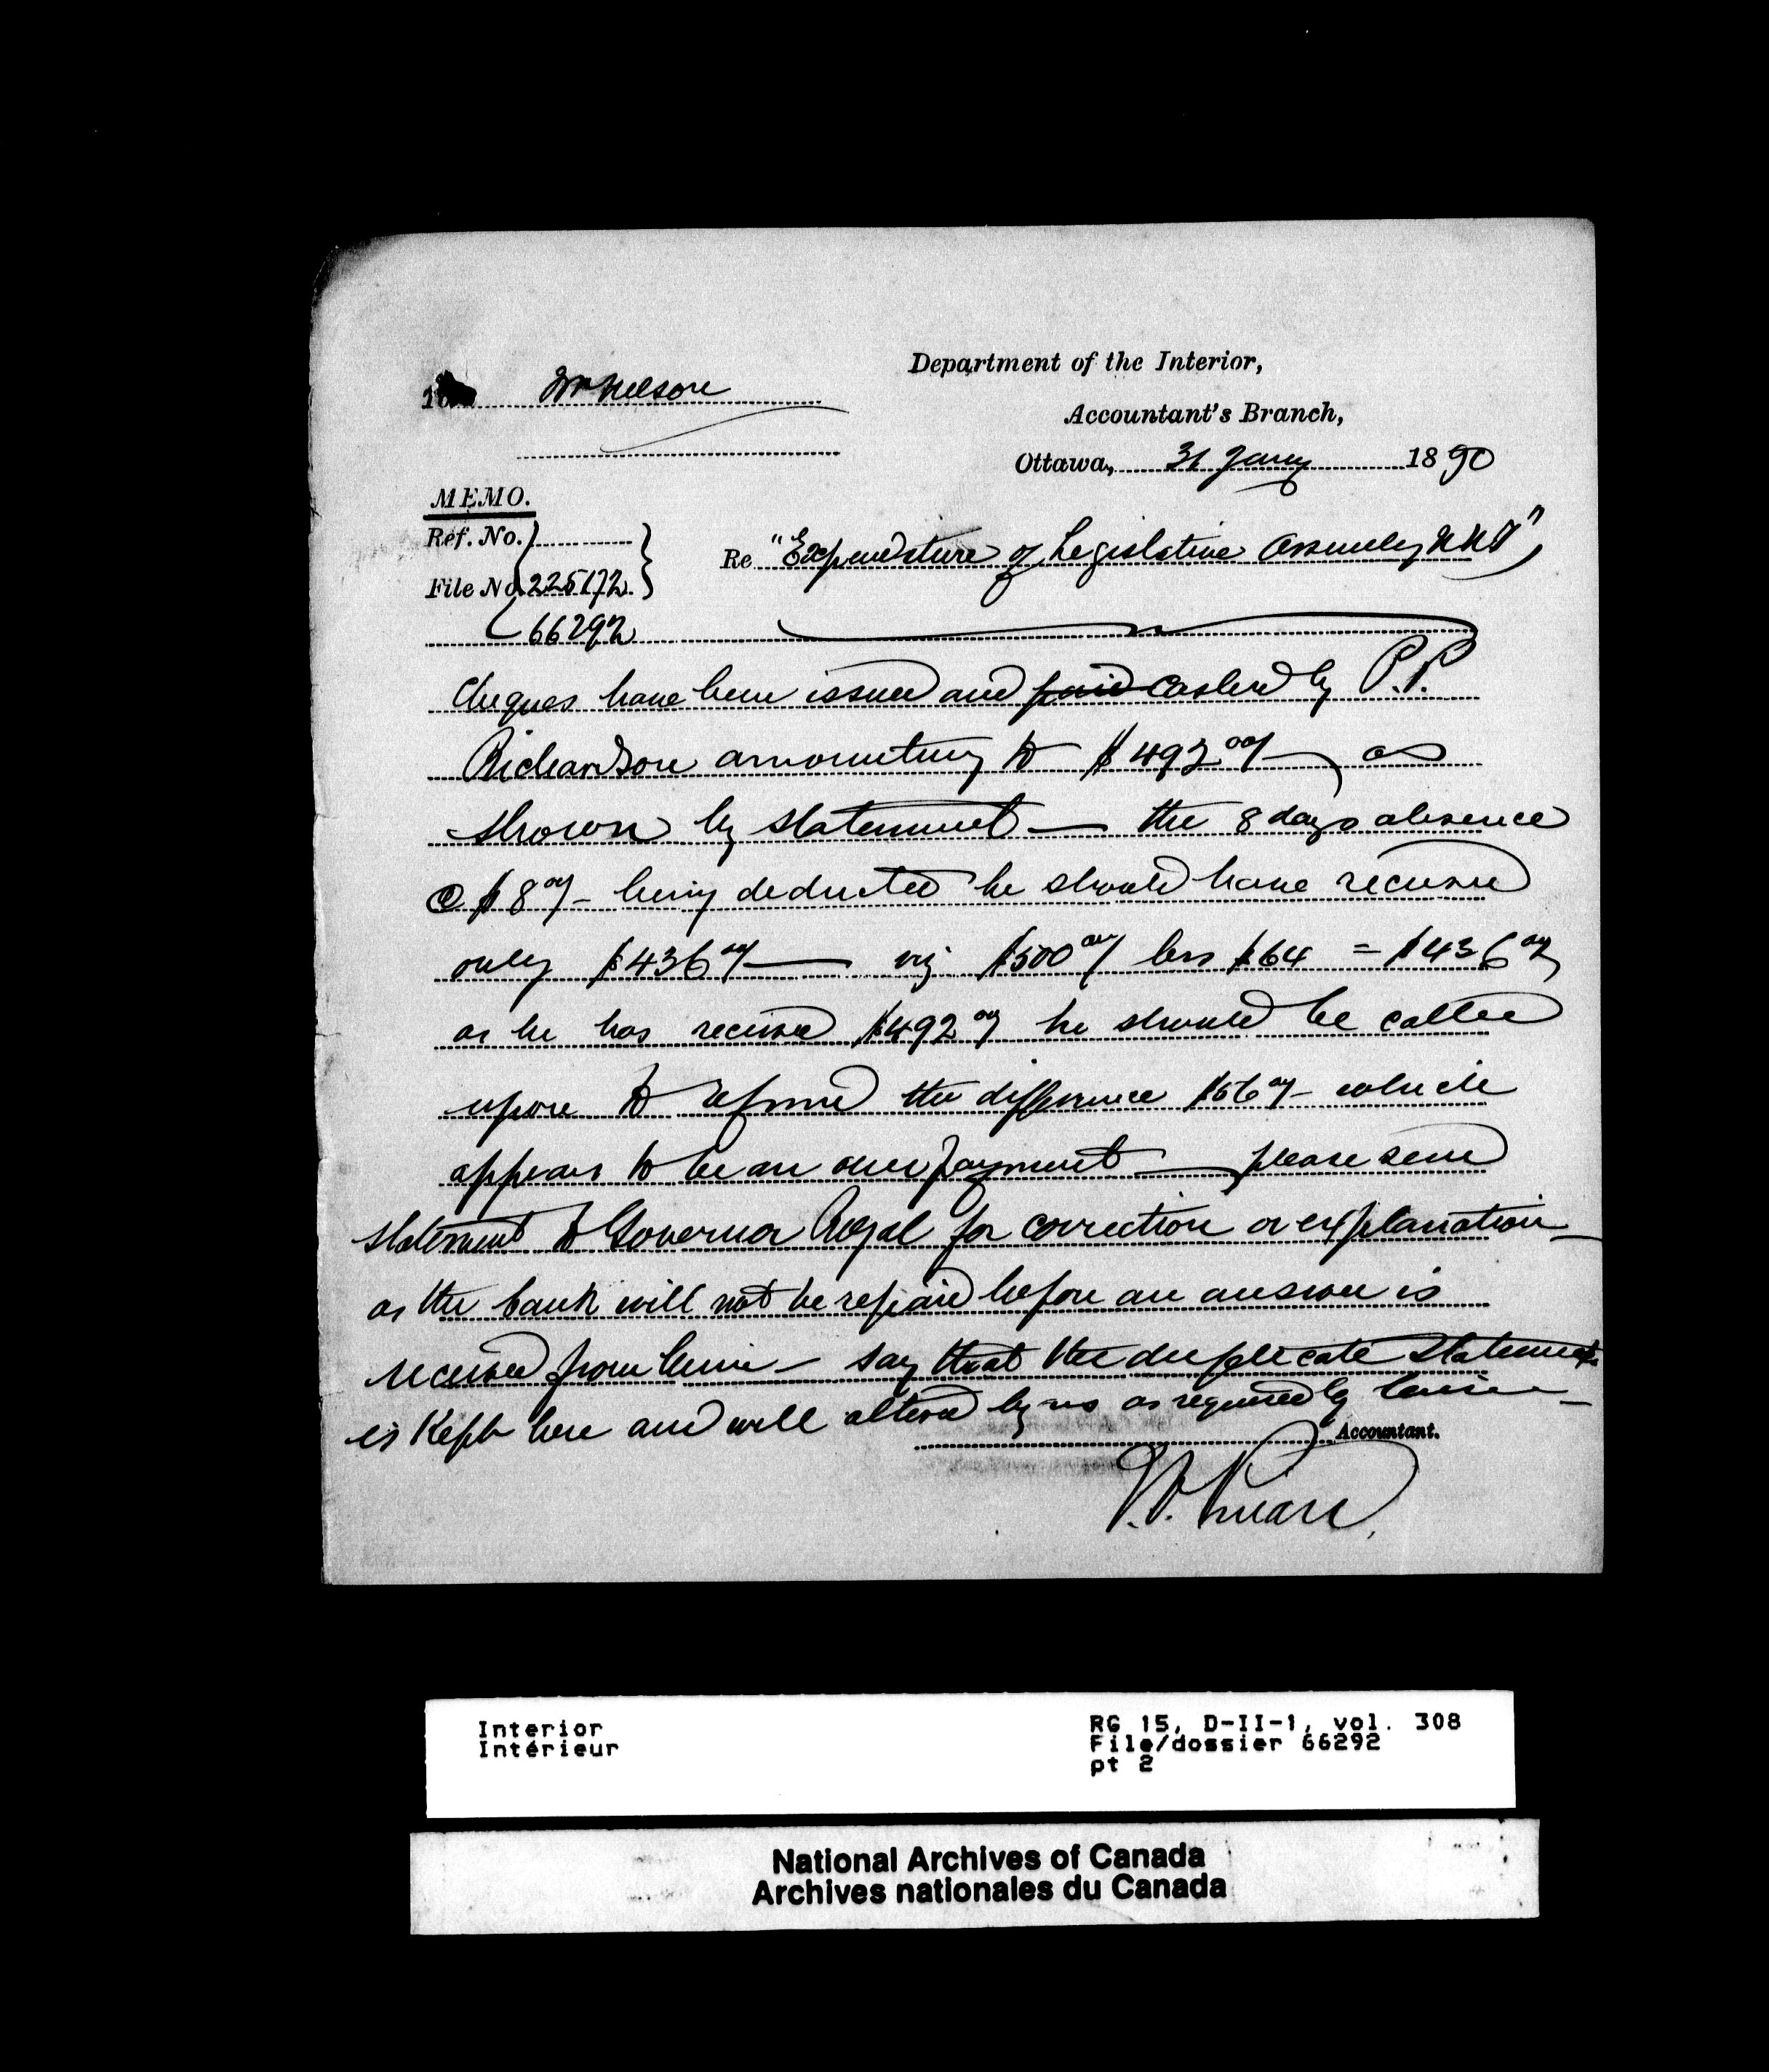 Department of the Interior,
To Mr Nelson
Accountant's Branch,
Ottawa, 31 Jany 1890
MEMO.
Ref. No.
File No. 225172
66292
Re "Expenditure of Legislative Assembly NWT"
Cheques have been issued and paid cashed by P.P.
Richardson amounting to $492 00/ as
shown by statement — the 8 days absence
@ $8 00/ – being deducted he should have received
only $436 00/ — viz $500 00/ less $64 = $436 00/
as he has received $492 00/ he should be called
upon to refund the difference $56 00/ – which
appears to be an over payment — please send
statement to Governor Royal for correction or explanation —
as the bank will not be repaid before an answer is
received from him – say that the duplicate statement
is kept here and will altered by us as required by him —
Accountant.
Interior
Intérieur
RG 15, D-II-1, vol. 308
File/dossier 66292
pt 2
National Archives of Canada
Archives nationales du Canada